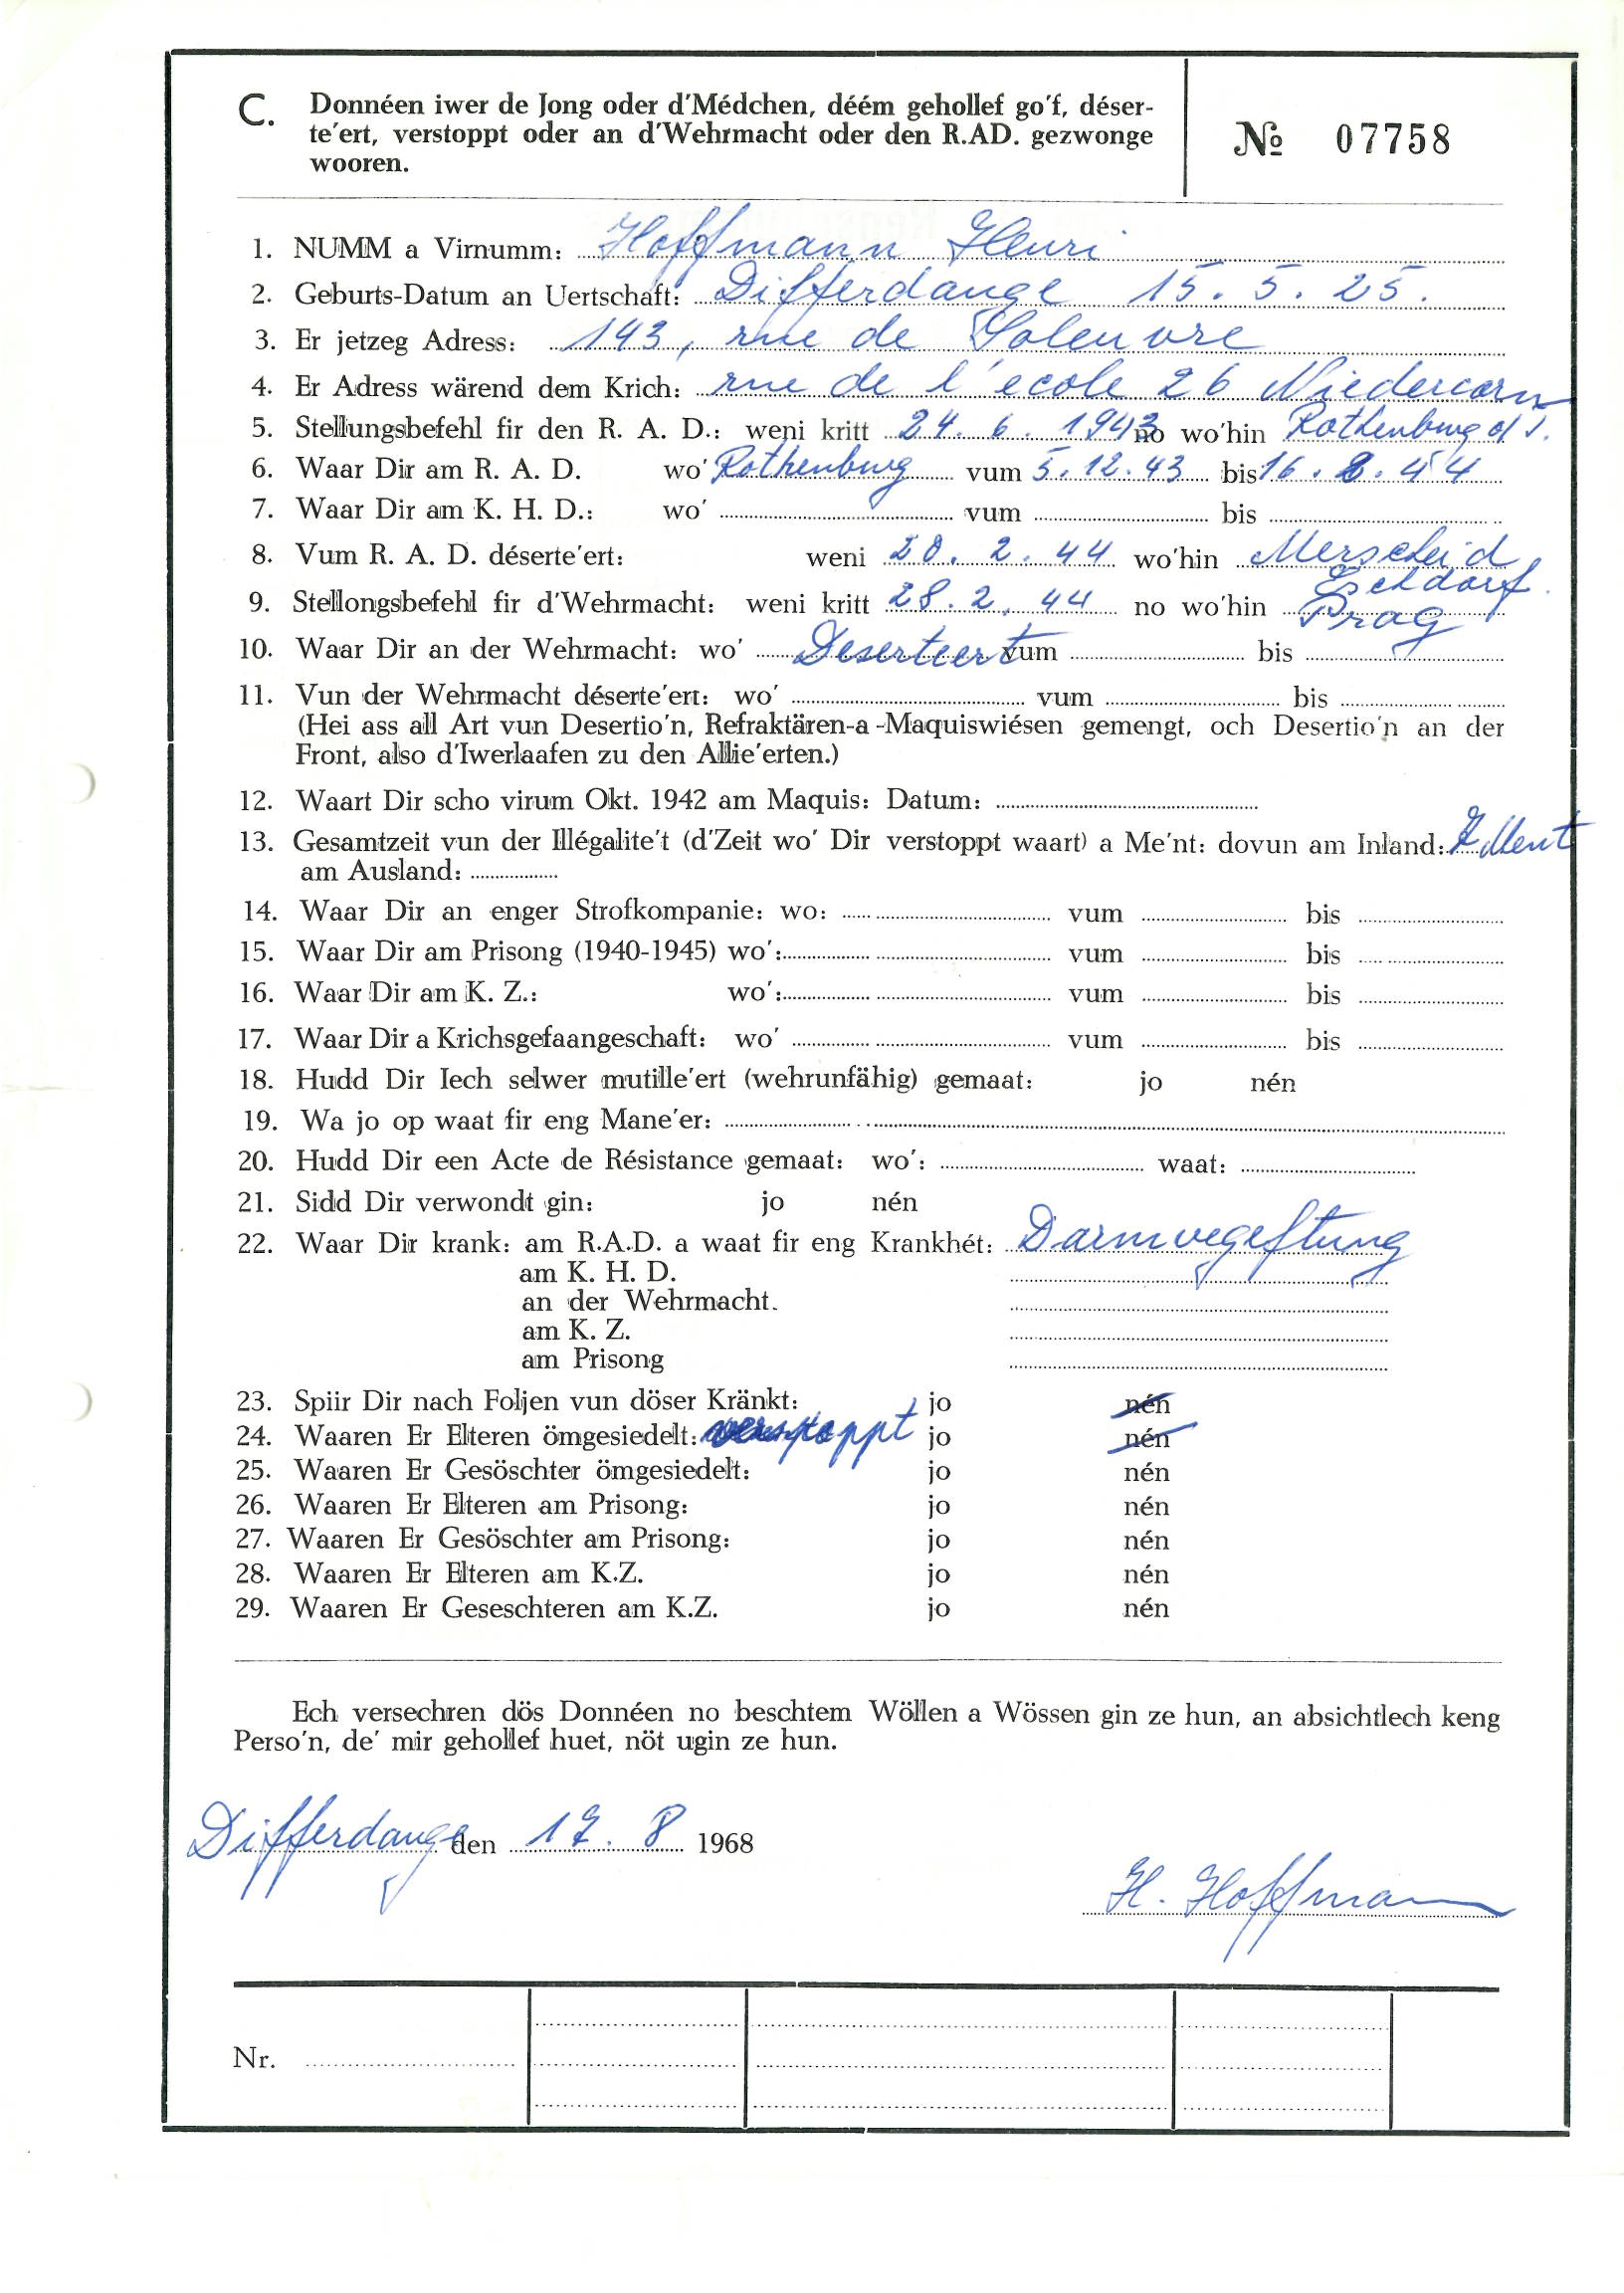 C. Donnéen iwer de Jong oder d'Médchen, déém gehollef go'f, déser-
te'ert, verstoppt oder an d'Wehrmacht oder den R.AD. gezwonge
wooren.
№ 07758
1. NUMM a Virnumm: Hoffmann Henri
2. Geburts-Datum an Uertschaft: Differdange 15. 5. 25.
3. Er jetzeg Adress: 143, rue de Soleuvre
4. Er Adress wärend dem Krich: rue de l'ecole 26 Niedercorn
5. Stellungsbefehl fir den R. A. D.: weni kritt 24. 6. 1943 no wo'hin Rothenburg o/T.
6. Waar Dir am R. A. D. wo' Rothenburg vum 5. 12. 43 bis 16. 2. 44
7. Waar Dir am K. H. D.: wo' vum bis
8. Vum R. A. D. déserte'ert: weni 28. 2. 44 wo'hin Merscheid
Eschdorf.
9. Stellongsbefehl fir d'Wehrmacht: weni kritt 28. 2. 44 no wo'hin Prag
10. Waar Dir an der Wehrmacht: wo' Deserteert vum bis
11. Vun der Wehrmacht déserte'ert: wo' vum bis
(Hei ass all Art vun Desertio'n, Refraktären-a-Maquiswiésen gemengt, och Desertio'n an der
Front, also d'Iwerlaafen zu den Allie'erten.)
12. Waart Dir scho virum Okt. 1942 am Maquis: Datum:
13. Gesamtzeit vun der Illégalite't (d'Zeit wo' Dir verstoppt waart) a Me'nt: dovun am Inland: 7 Ment
am Ausland:
14. Waar Dir an enger Strofkompanie: wo: vum bis
15. Waar Dir am Prisong (1940-1945) wo': vum bis
16. Waar Dir am K. Z.: wo': vum bis
17. Waar Dir a Krichsgefaangeschaft: wo' vum bis
18. Hudd Dir Iech selwer mutille'ert (wehrunfähig) gemaat: jo nén
19. Wa jo op waat fir eng Mane'er:
20. Hudd Dir een Acte de Résistance gemaat: wo': waat:
21. Sidd Dir verwondt gin: jo nén
22. Waar Dir krank: am R.A.D. a waat fir eng Krankhét: Darmvegeftung
am K. H. D.
an der Wehrmacht.
am K. Z.
am Prisong
23. Spiir Dir nach Foljen vun döser Kränkt: jo nén
24. Waaren Er Elteren ömgesiedelt: verstoppt jo nén
25. Waaren Er Gesöschter ömgesiedelt: jo nén
26. Waaren Er Elteren am Prisong: jo nén
27. Waaren Er Gesöschter am Prisong: jo nén
28. Waaren Er Elteren am K.Z. jo nén
29. Waaren Er Geseschteren am K.Z. jo nén
Ech versechren dös Donnéen no beschtem Wöllen a Wössen gin ze hun, an absichtlech keng
Perso'n, de' mir gehollef huet, nöt ugin ze hun.
Differdange den 17. 8 1968
H. Hoffmann
Nr.